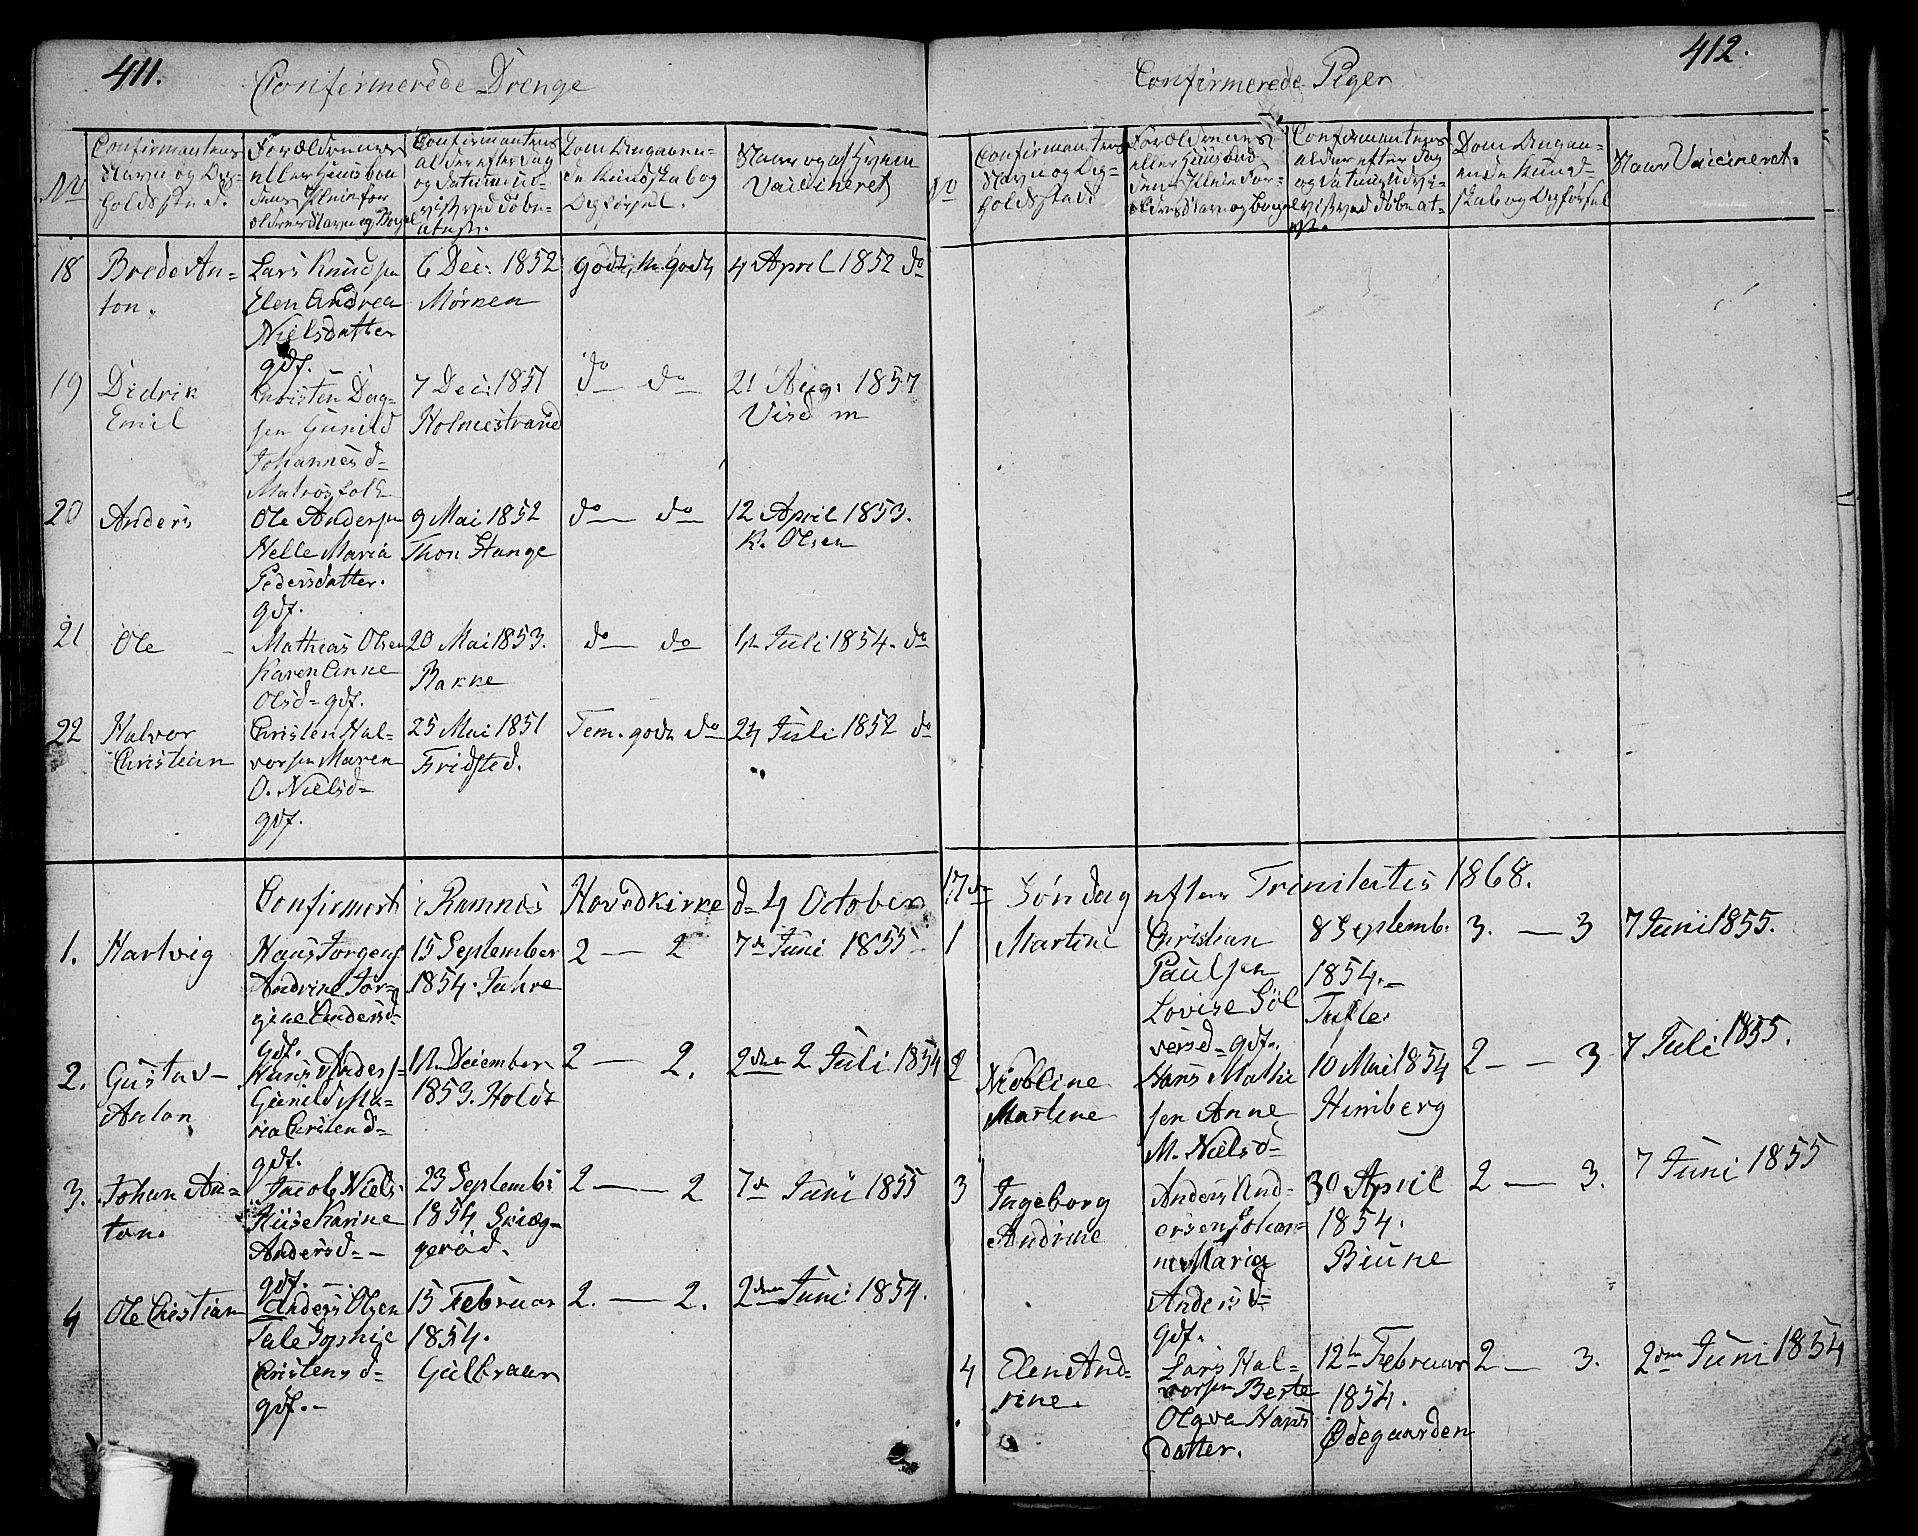 411.
Confirmerede Drenge
No
Confirmantens
Navn og Op-
holdssted.
Forældrenes
eller Huusbon
dens Pleiefor
ældrenes Navn og Bopæl
Confirmantens
alder efter Dag
og Datum ud-
vist ved Døbe-
attest.
Dom Angaaen-
de Kundskab og
Opførsel.
Naar og af Hvem
Vaccineret
18
Brede An-
ton.
Lars Knudsen
Elen Andrea
Nielsdatter
gdf.
6 Dec. 1852
Mørken
godt, m. godt
4 April 1852 do
19
Didrik
Emil
Christen Dag-
sen Gunild
Johannesd=
Matrosfolk
7 Dec. 1851
Holmestrand
do — do —
21 Aug. 1857
20
Anders
Ole Andersen
Helle Maria
Pedersdatter.
gdf.
9 Mai 1852
Thon Stange
do — do
12 April 1853.
K. Olsen
21
Ole
Mathias Olsen
Karen Anne
Olsd= gdf.
20 Mai 1853.
Bakke
do — do
4 Juli 1854. do
22
Halvor
Christian
Christen Hal-
vorsen Maren
O. Nielsd=
gdf.
25 Mai 1851
Fridsted.
Tem. godt do
24 Juli 1852 do
Confirmert i Ramnes Hovedkirke d= 4 October
1.
Hartvig
Hans Jorgens
Andrine Jor-
gine Andersd=
gdf.
15 September
1854. Jahre
2 — 2
7de Juni 1855
2.
Gustav-
Anton
Hans Anders-
Gunild Ma-
ria Cristend=
gdf.
December
1853. Holdt
2 — 2.
2den 2 Juli 1854
3.
Johan An-
ton.
Jacob Niels.
Karine
Andersd= -
gdf. —
23 Septembr
1854
gerød.
2 — 2
7de Juni 1855
4
Ole Christian
Anders Olsen
Tale Sophie
Cristensd=
gdf. -
15 Februar
1854.
Gulbraar
2. — 2.
2den Juni 1854.
412.
Confirmerede Piger
No
Confirmantens
Navn og Op-
holdssted
Forældrenes
eller Huusbon
dens Pleiefor-
ældrenes Navn og Bopæl
Confirmantens
alder efter Dag
og Datum udvi-
vist ved døbeat-
est.
Dom Angaa-
ende Kund-
skab og Opførsel
Naar Vaccineret.
17de Søndag efter Trinitatis 1868.
1
Martine
Christian
Paulsen
Lovise Søl
versd= gdf.
8 Septemb.
1854. -
Tufte
3. — 3
7 Junii 1855.
2
Nicoline
Martine
Hans Mathi
sen Anne
M. Nielsd=
10 Mai 1854
Himberg
2 — 3
7 Juli 1855.
3
Ingeborg
Andrine
Anders And-
ersen Johan-
ne Maria
Andersd=
gdf.
30 April
1854.
Biune
2 — 3.
7 Juni 1855
4
Elen And-
rine.
Lars Hal-
vorsen Berte
Olava Hans
datter.
12te Februar
1854.
Ødegaarden
2 — 3.
2den Juni 1854